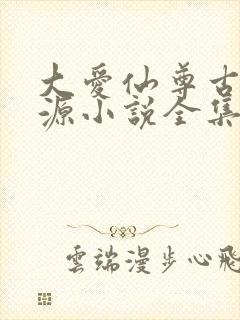 大愛仙尊古
源小說全集
雲端漫步心飛